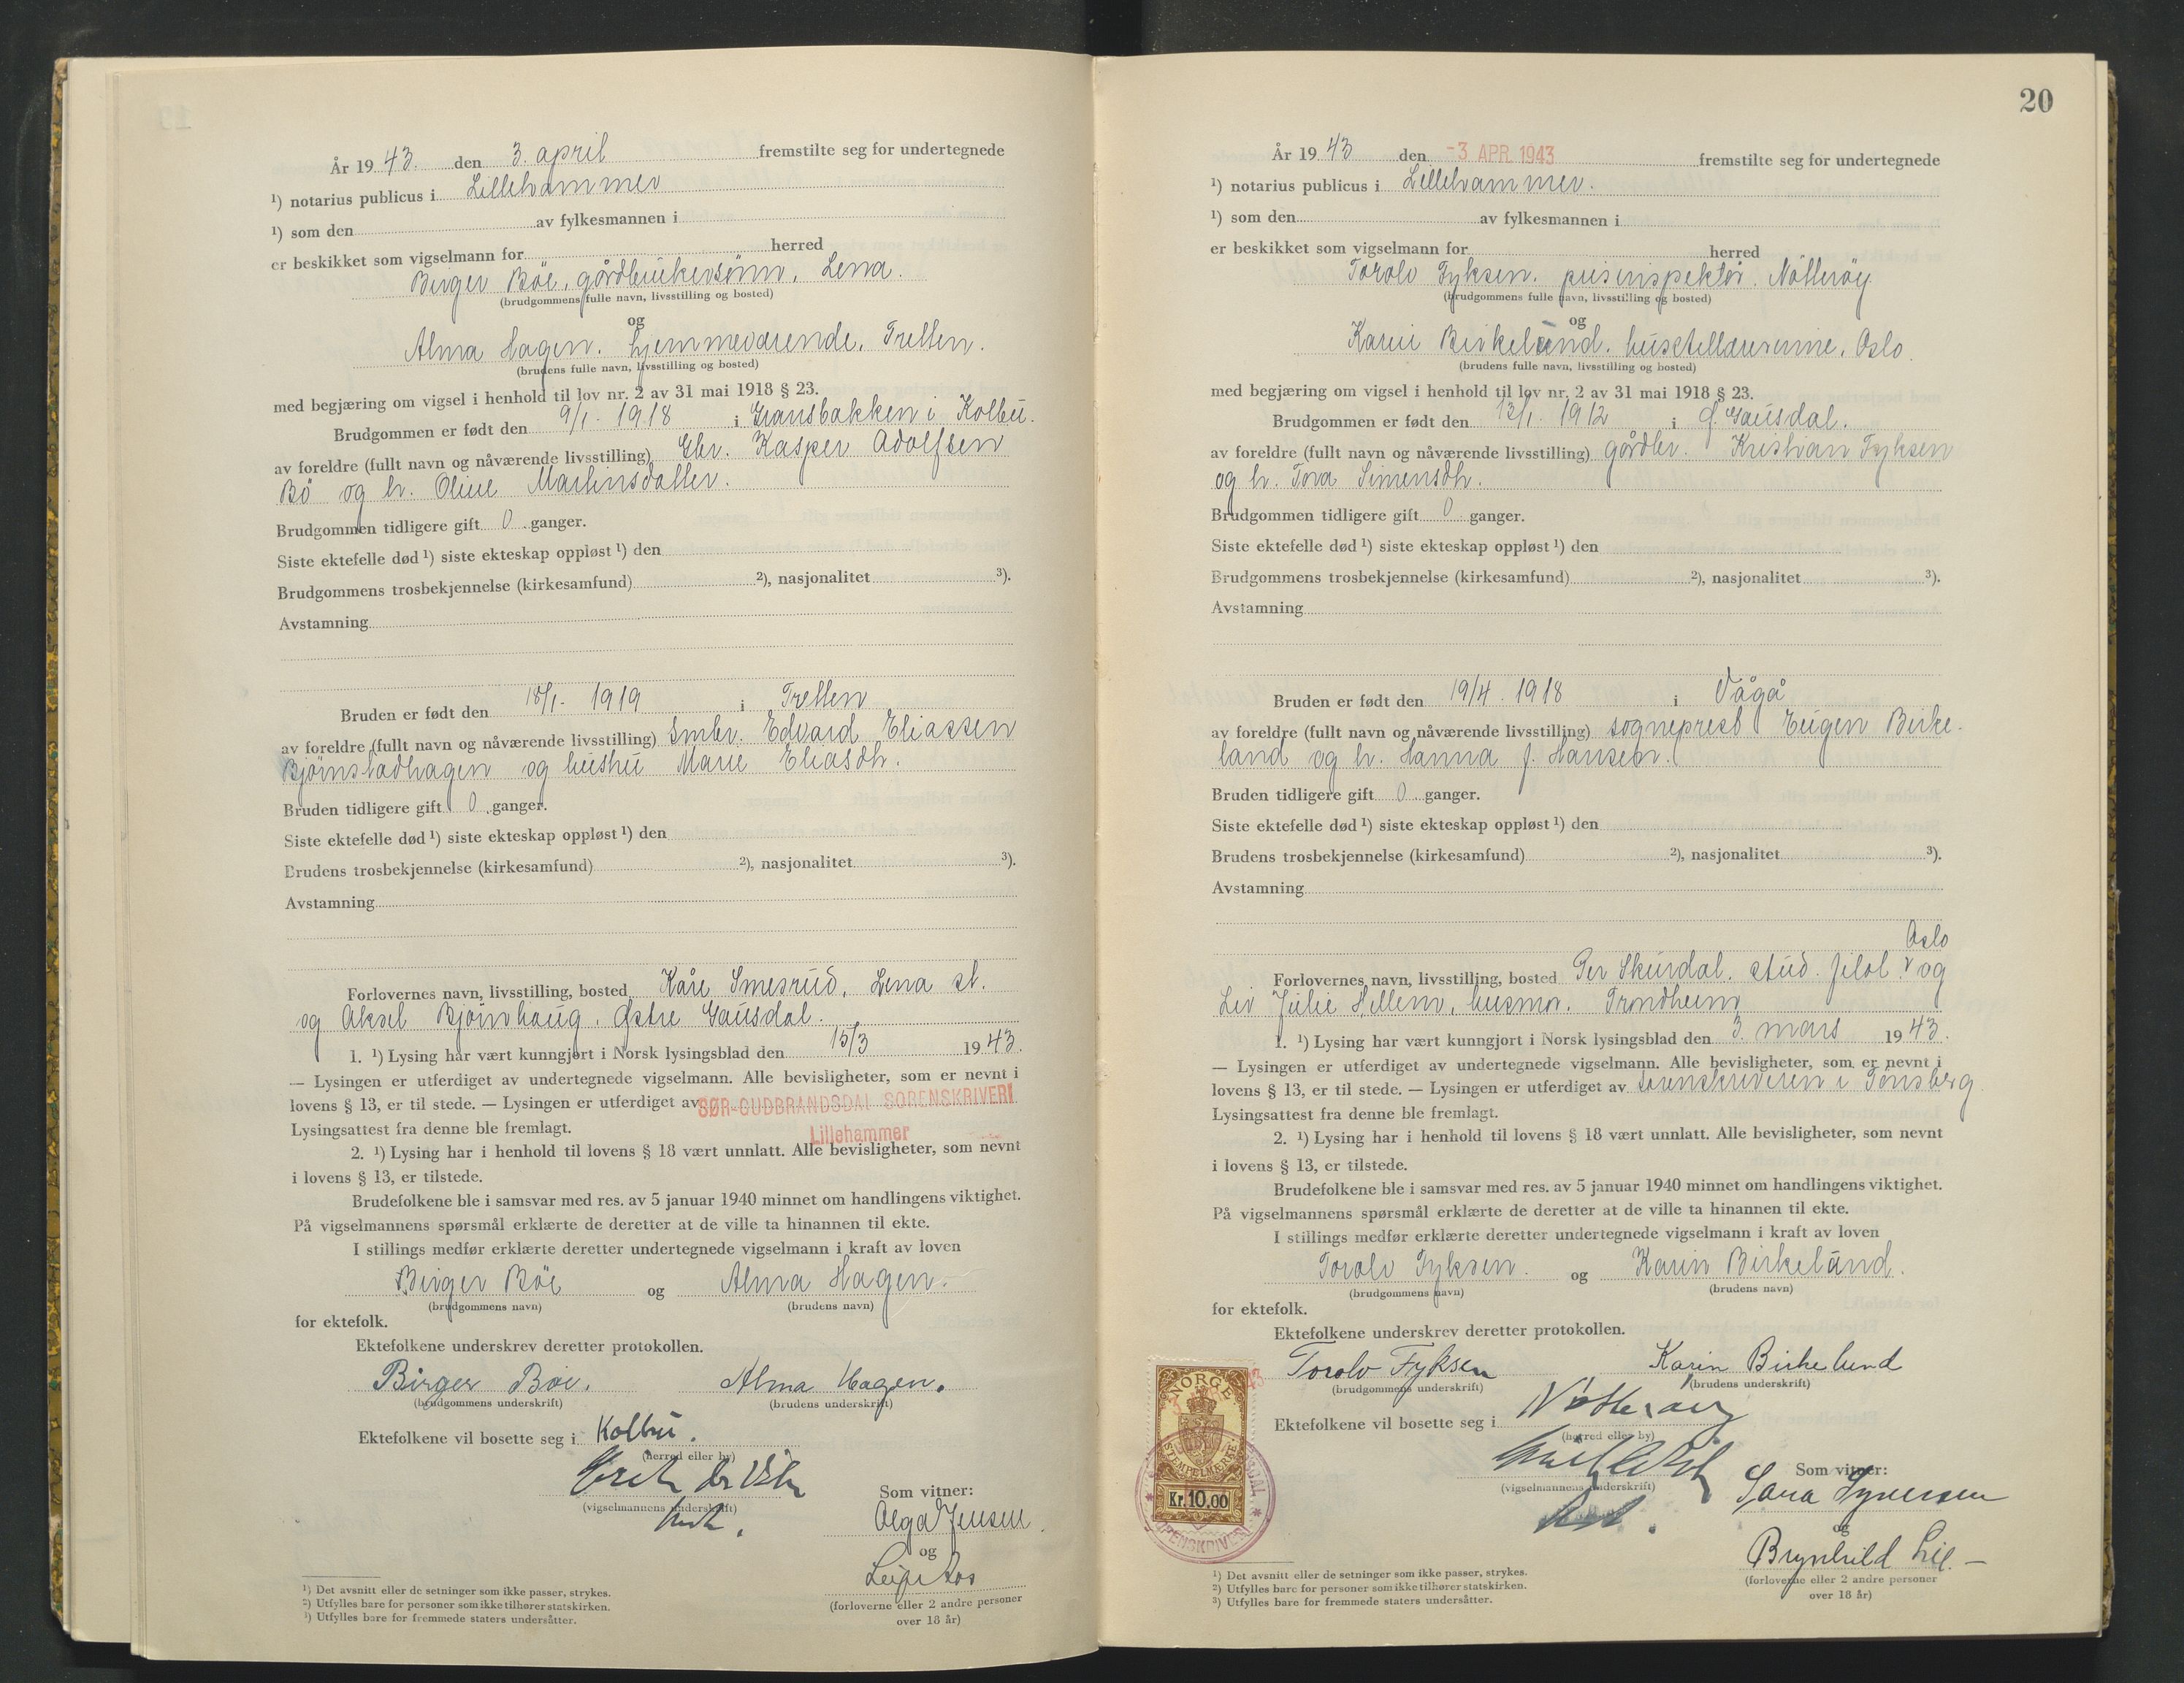 År 19 43. den 3. april fremstilte seg for undertegnede
¹) notarius publicus i Lillehammer
¹) som den av fylkesmannen i
er beskikket som vigselmann for herred
Birger Böe, gårdbrukersönn, Lena.
(brudgommens fulle navn, livsstilling og bosted)
og
Alma Hagen. hjemmeværende, Tretten.
(brudens fulle navn, livsstilling og bosted)
med begjæring om vigsel i henhold til lov nr. 2 av 31 mai 1918 § 23.
Brudgommen er født den 9/1. 1918 i Gransbakken i Kolbu.
av foreldre (fullt navn og nåværende livsstilling) Gbr. Kasper Adolfsen
Bö og h. Oline Martinsdatter.
Brudgommen tidligere gift 0 ganger.
Siste ektefelle død ¹) siste ekteskap oppløst ¹) den
Brudgommens trosbekjennelse (kirkesamfund) ²), nasjonalitet ³).
Avstamning
Bruden er født den 18/1. 1919 i Tretten
av foreldre (fullt navn og nåværende livsstilling) Smbr. Edvard Eliassen
Bjørnstadhagen og hustru Marie Eliasdtr.
Bruden tidligere gift 0 ganger.
Siste ektefelle død ¹) siste ekteskap oppløst ¹) den
Brudens trosbekjennelse (kirkesamfund) ²), nasjonalitet ³).
Avstamning
Forlovernes navn, livsstilling, bosted Kåre Smesrud, Lena st.
og Aksel Bjørnhaug, Østre Gausdal.
1. ¹) Lysing har vært kunngjort i Norsk lysingsblad den 15/3 19 43.
— Lysingen er utferdiget av undertegnede vigselmann. Alle bevisligheter, som er nevnt i
lovens § 13, er til stede. — Lysingen er utferdiget av SØR-GUDBRANDSDAL SORENSKRIVERI
Lillehammer
Lysingsattest fra denne ble fremlagt.
2. ¹) Lysing har i henhold til lovens § 18 vært unnlatt. Alle bevisligheter, som nevnt
i lovens § 13, er tilstede.
Brudefolkene ble i samsvar med res. av 5 januar 1940 minnet om handlingens viktighet.
På vigselmannens spørsmål erklærte de deretter at de ville ta hinannen til ekte.
I stillings medfør erklærte deretter undertegnede vigselmann i kraft av loven
Birger Böe og Alma Hagen.
(brudgommens navn) (brudens navn)
for ektefolk.
Ektefolkene underskrev deretter protokollen.
Birger Böe. Alma Hagen.
(brudgommens underskrift) (brudens underskrift)
Ektefolkene vil bosette seg i Kolbu.
(herred eller by)
(vigselmannens underskrift)
Som vitner:
Olga Jensen.
og
(forloverne eller 2 andre personer
over 18 år)
¹) Det avsnitt eller de setninger som ikke passer, strykes.
²) Utfylles bare for personer som ikke tilhører statskirken.
³) Utfylles bare for fremmede staters undersåtter.
20
År 19 43 den -3 APR. 1943 fremstilte seg for undertegnede
¹) notarius publicus i Lillehammer.
¹) som den av fylkesmannen i
er beskikket som vigselmann for herred
Torolv Fyksen. prisinspektör. Nötteröy
(brudgommens fulle navn, livsstilling og bosted)
og
Karin Birkelund. husstellærerinne. Oslo.
(brudens fulle navn, livsstilling og bosted)
med begjæring om vigsel i henhold til lov nr. 2 av 31 mai 1918 § 23.
Brudgommen er født den 13/1. 1912 i Ø. Gausdal.
av foreldre (fullt navn og nåværende livsstilling) gårdbr. Kristian Fyksen
og h. Tora Simensdtr.
Brudgommen tidligere gift 0 ganger.
Siste ektefelle død ¹) siste ekteskap oppløst ¹) den
Brudgommens trosbekjennelse (kirkesamfund) ²), nasjonalitet ³).
Avstamning
Bruden er født den 19/4. 1918 i Vågå
av foreldre (fullt navn og nåværende livsstilling) sogneprest Eugen Birke-
land og h. Hanna f. Hansen.
Bruden tidligere gift 0 ganger.
Siste ektefelle død ¹) siste ekteskap oppløst ¹) den
Brudens trosbekjennelse (kirkesamfund) ²), nasjonalitet ³).
Avstamning
Oslo
Forlovernes navn, livsstilling, bosted Per Skurdal. stud. filol. og
Liv Julie Hellem, husmor. Trondheim
1. ¹) Lysing har vært kunngjort i Norsk lysingsblad den 3. mars 19 43.
— Lysingen er utferdiget av undertegnede vigselmann. Alle bevisligheter, som er nevnt i
lovens § 13, er til stede. — Lysingen er utferdiget av sorenskriveren i Tönsberg
Lysingsattest fra denne ble fremlagt.
2. ¹) Lysing har i henhold til lovens § 18 vært unnlatt. Alle bevisligheter, som nevnt
i lovens § 13, er tilstede.
Brudefolkene ble i samsvar med res. av 5 januar 1940 minnet om handlingens viktighet.
På vigselmannens spørsmål erklærte de deretter at de ville ta hinannen til ekte.
I stillings medfør erklærte deretter undertegnede vigselmann i kraft av loven
Torolv Fyksen. og Karin Birkelund.
(brudgommens navn) (brudens navn)
for ektefolk.
Ektefolkene underskrev deretter protokollen.
Torolv Fyksen Karin Birkelund
(brudgommens underskrift) (brudens underskrift)
Ektefolkene vil bosette seg i Nötteröy
(herred eller by)
(vigselmannens underskrift)
Som vitner:
Sara Syversen
og
Brynhild Lie. —
(forloverne eller 2 andre personer
over 18 år)
NORGE
STEMPELMERKE
Kr. 10.00
¹) Det avsnitt eller de setninger som ikke passer, strykes.
²) Utfylles bare for personer som ikke tilhører statskirken.
³) Utfylles bare for fremmede staters undersåtter.